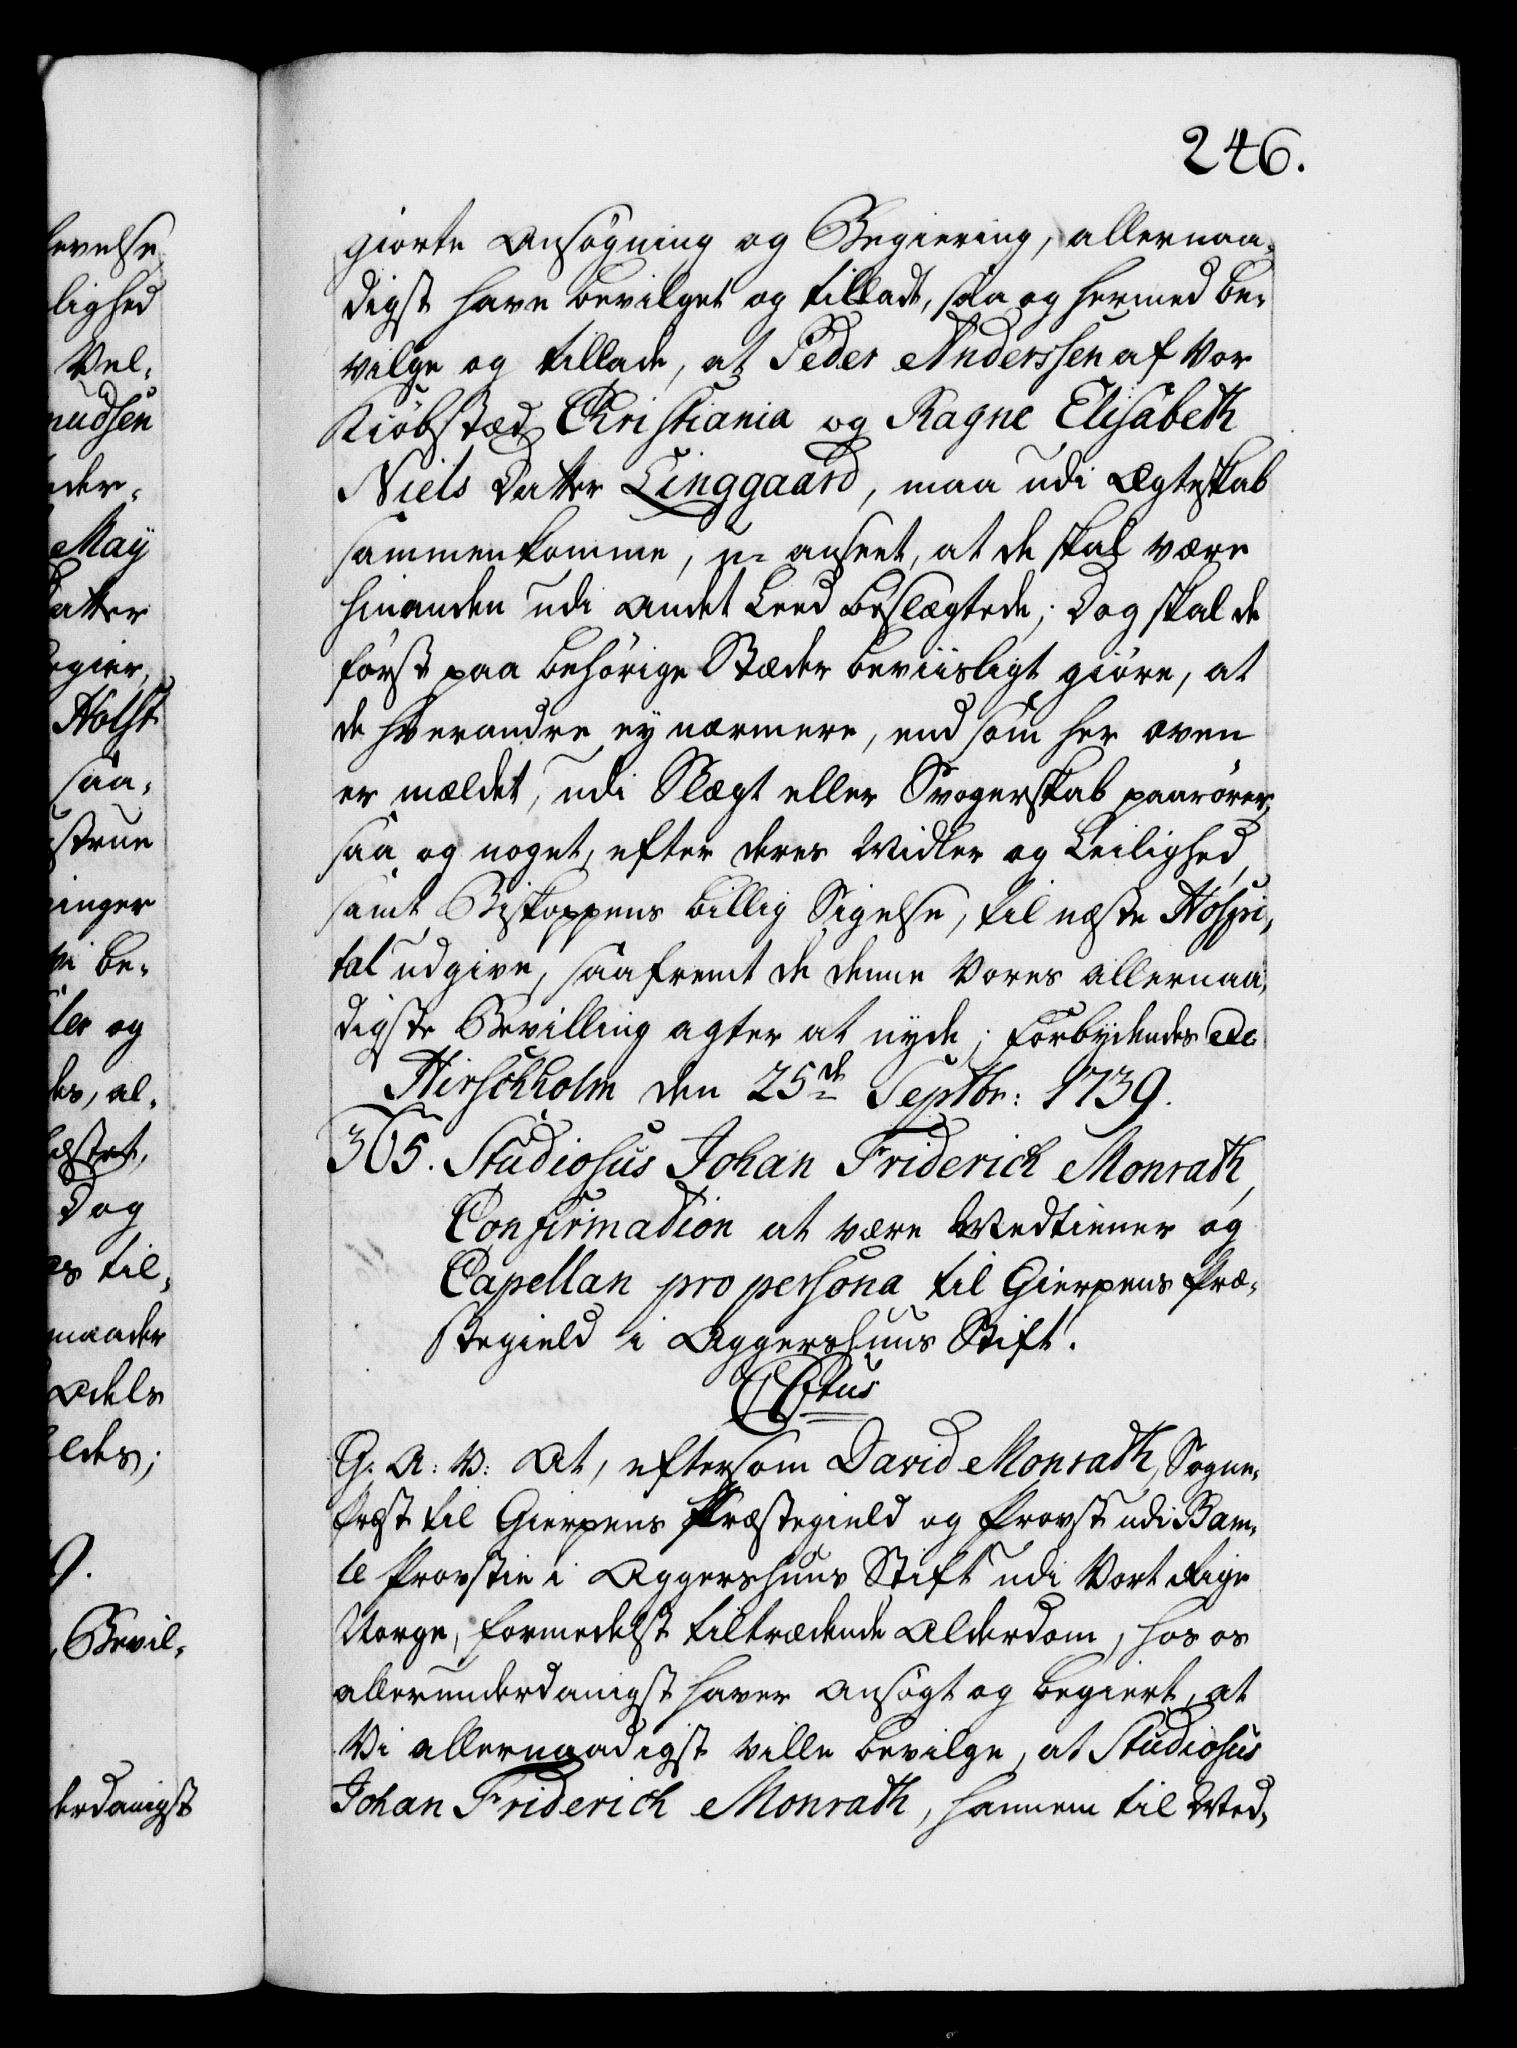 246.
giorte Ansøgning og Begiering, allernaa-
digst have bevilget og tilladt, saa og hermed be-
vilge og tillade, at Peder Anderssen af Vor
Kiøbstæd Christiania og Ragne Elisabeth
Niels Datter Linggaard, maa udi Ægteskab
sammenkomme, u-anseet, at de skal være
hinanden udi andet Leed beslægtede; Dog skal de
først paa behørige Stæder beviisligt giøre, at
de hverandre ey nærmere, end som her oven
er mældet, udi Slægt eller Svogerskab paarører,
saa og noget, efter deres Midler og Leilighed,
samt Biskoppens billig Sigelse, til næste Hospi-
tal udgive, saafremt de denne Vores allernaa-
digste Bevilling agter at nyde; Forbydendes etc
Hirschholm den 25de Septbr: 1739.
365. Studiosus Johan Friderich Monrath,
Confirmation at være Medtiener og
Capellan pro persona til Gierpens Præ-
stegield i Aggershuus Stift.
CC6tus
G. A: V: At, eftersom David Monrath, Sogne-
Præst til Gierpens Præstegield og Provst udi Bam-
le Provstie i Aggershuus Stift udi Vort Rige
Norge, formedelst tiltrædende Alderdom, hos os
allerunderdanigst haver ansøgt og begiert, at
Vi allernaadigst ville bevilge, at Studiosus
Johan Friderich Monrath, hannem til Med-
evelse
lighed
Vel-
nudsen
nder-
May
atter
egier,
Holst
saa-
strue
ringer
vi be-
ler og
des, al-
Dog
es til-
maader
Adels
ldes;
9.
, Bevil-
derdanigst